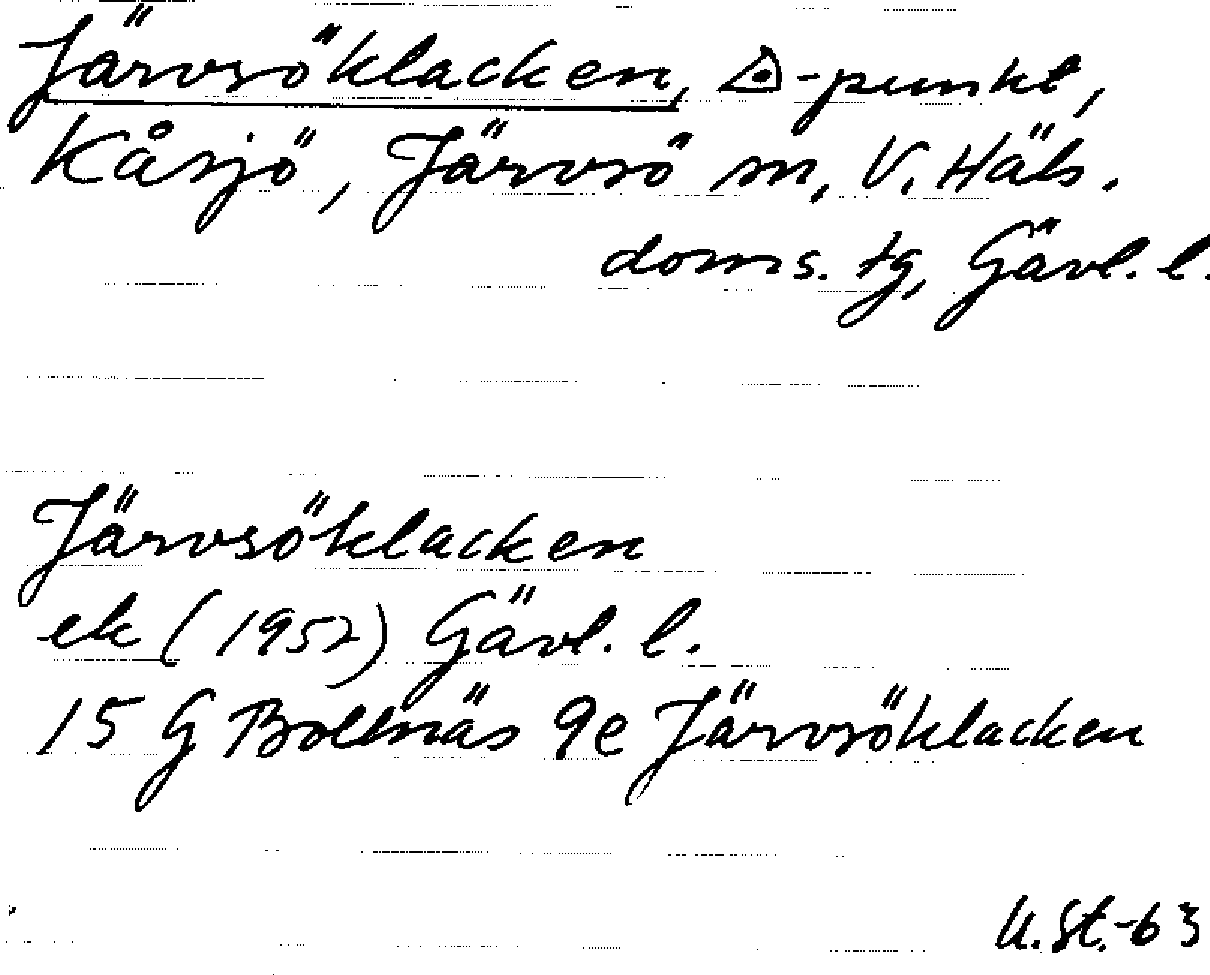 Järvsöklacken, △-punkt,
Kåsjö, Järvsö sn, V. Häls.
doms. tg, Gävl. l.
Järvsöklacken
ek (1952) Gävl. l.
15 G Bollnäs 9e Järvsöklacken
U. St.-63